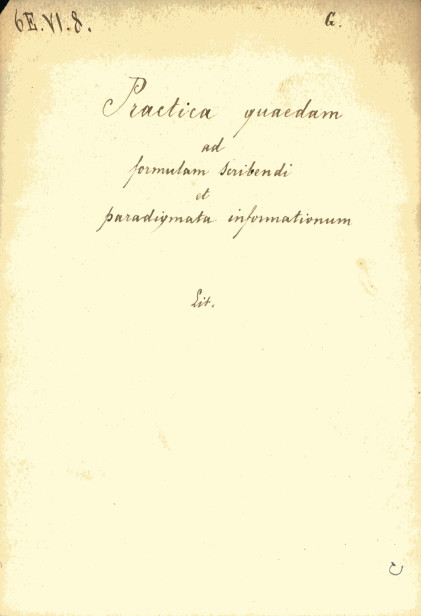 6E.VI.8.
G.
Practica quaedam
ad
formulam scribendi
et
paradigmata informationum
Lit.